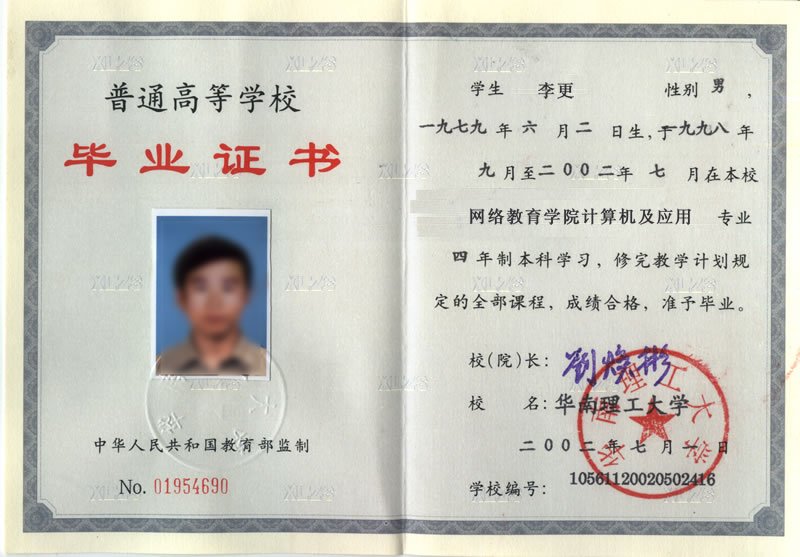 普通高等学校
毕业证书
中华人民共和国教育部监制
No. 01954690
学生 李更 性别 男，
一九七九年六月二日生，于一九九八年
九月至二００二年七月在本校
网络教育学院计算机及应用 专业
四年制本科学习，修完教学计划规
定的全部课程，成绩合格，准予毕业。
校(院)长：劉焕彬
校 名：华南理工大学
二００二年七月一日
学校编号：10561120020502416
华南理工大学